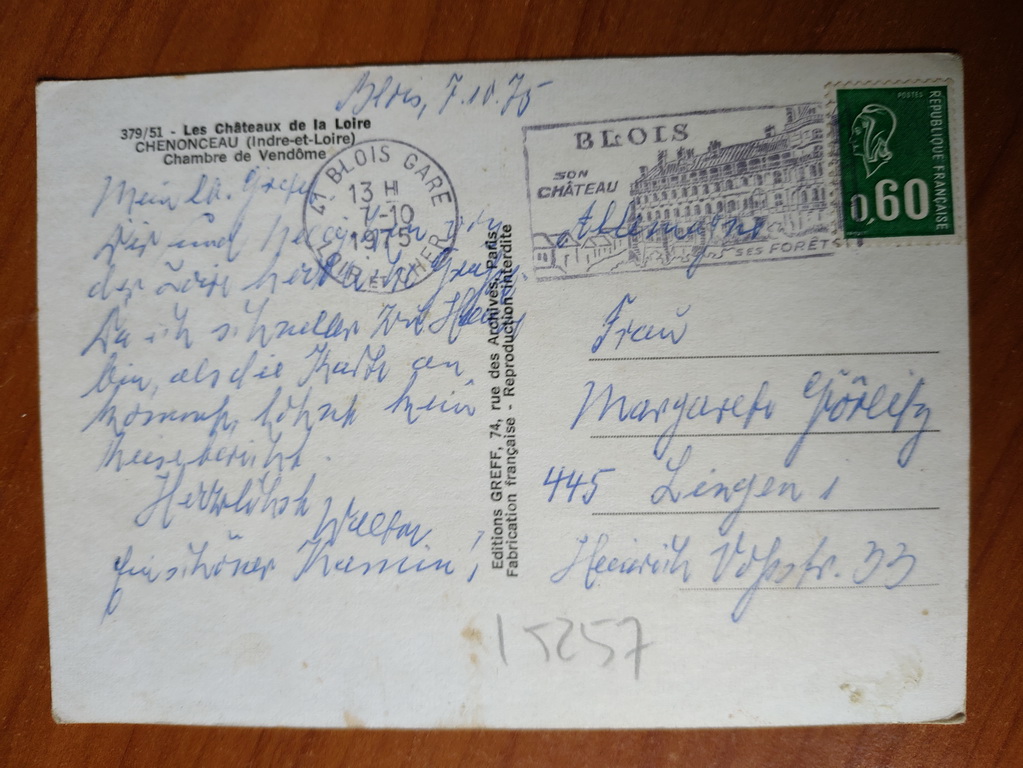 Blois, 7.10.75
379/51 - Les Châteaux de la Loire
CHENONCEAU (Indre-et-Loire)
Chambre de Vendôme
41 BLOIS GARE
13 H
7-10
1975
LOIR ET CHER
BLOIS
SON
CHÂTEAU
SES FORÊTS
POSTES
RÉPUBLIQUE FRANÇAISE
0,60
Mein lb.
Dir und
der Loire
Da ich schneller zu
bin, als die Karte an
kommt, lohnt kein
Reisebericht.
Herzlichst
Walter
Ein schöner Kamin!
Editions GREFF, 74, rue des Archives, Paris
Fabrication française - Reproduction interdite
Allemagne
Frau
Margarete Görlitz
445 Lingen 1
Heinrich Voßstr. 33
15257